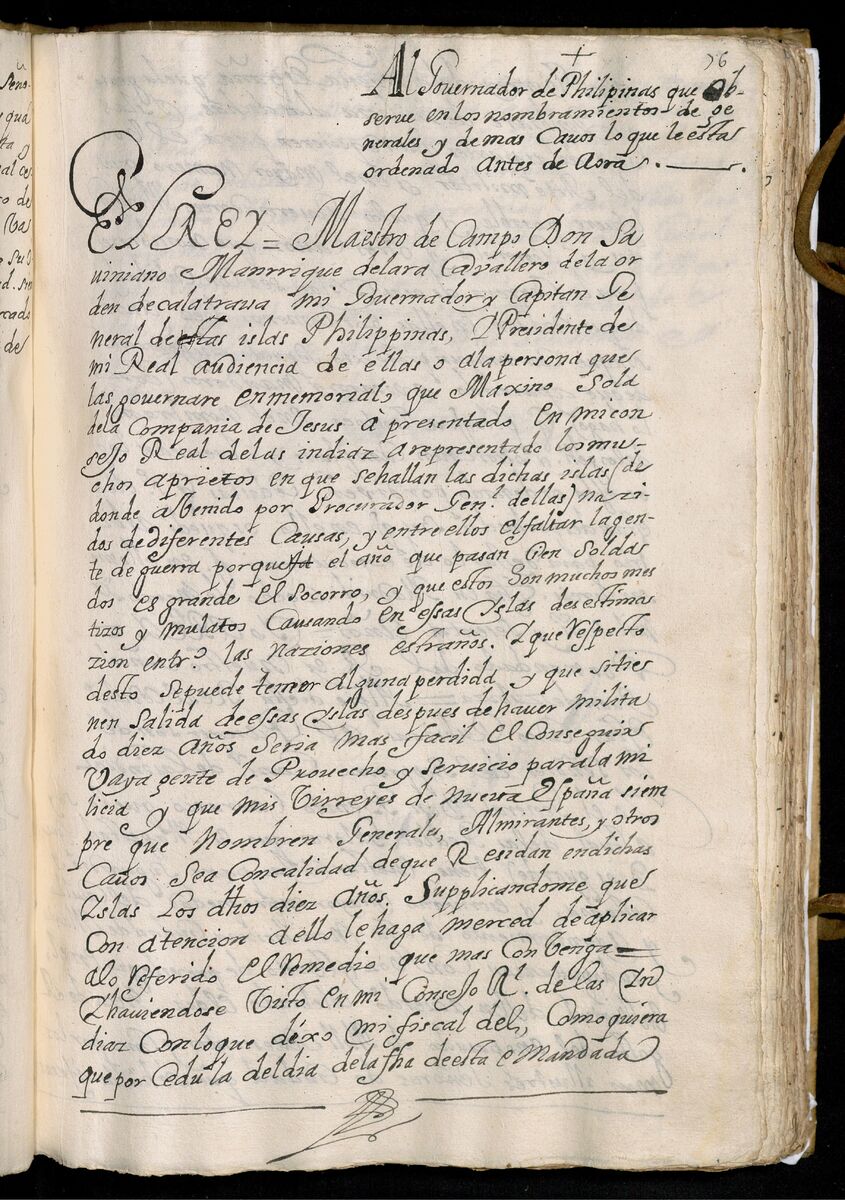 +
76
Al Governador de Philipinas que ob-
serue en los nombramientos de ge
nerales y de mas Cauos lo que le esta
ordenado Antes de Aora.
EL REY = Maestro de Campo Don Sa
uiniano Manrrique de lara Cavallero de la or
den de calatraua mi Gouernador y Capitan Ge
neral de estas islas Philippinas, Y Presidente de
mi Real audiencia de ellas o ala persona que
las governare en memorial, que Maxino Sola
dela Compania de Jesus à presentado En mi con
sejo Real delas indiaz a representado los mu-
chos aprietos en que se hallan las dichas islas (de
donde a Venido por Procurador Gen.l dellas) nazi-
dos de diferentes Causas, y entre ellos el faltar la gen-
te de guerra porque el año que pasan Cien Solda
dos es grande El Socorro, y que estos Son muchos mes
tizos y mulatos Causando En essas Yslas desestima
zion entr.e las naziones estrañas. Y que Respecto
desto se puede temer Alguna perdida y que si tie
nen Salida de essas Yslas despues de hauer milita
do diez Años Seria mas facil El Conseguir
Vaya gente de Prouecho y servicio para la mi
licia y que mis Virreyes de nueva España siem
pre que nombren Generales, Almirantes, y otros
Cauos Sea Con calidad de que Residan en dichas
Yslas Los dhos diez Años. Supplicandome que
Con atencion a ello le haga merced de aplicar
alo Referido El Remedio que mas Convenga =
Y hauiendose Visto En mi Consejo R.l de las Yn
diaz Con lo que dixo mi fiscal del, Como quiera
que por Cedula del dia de la fha de esta e Mandado